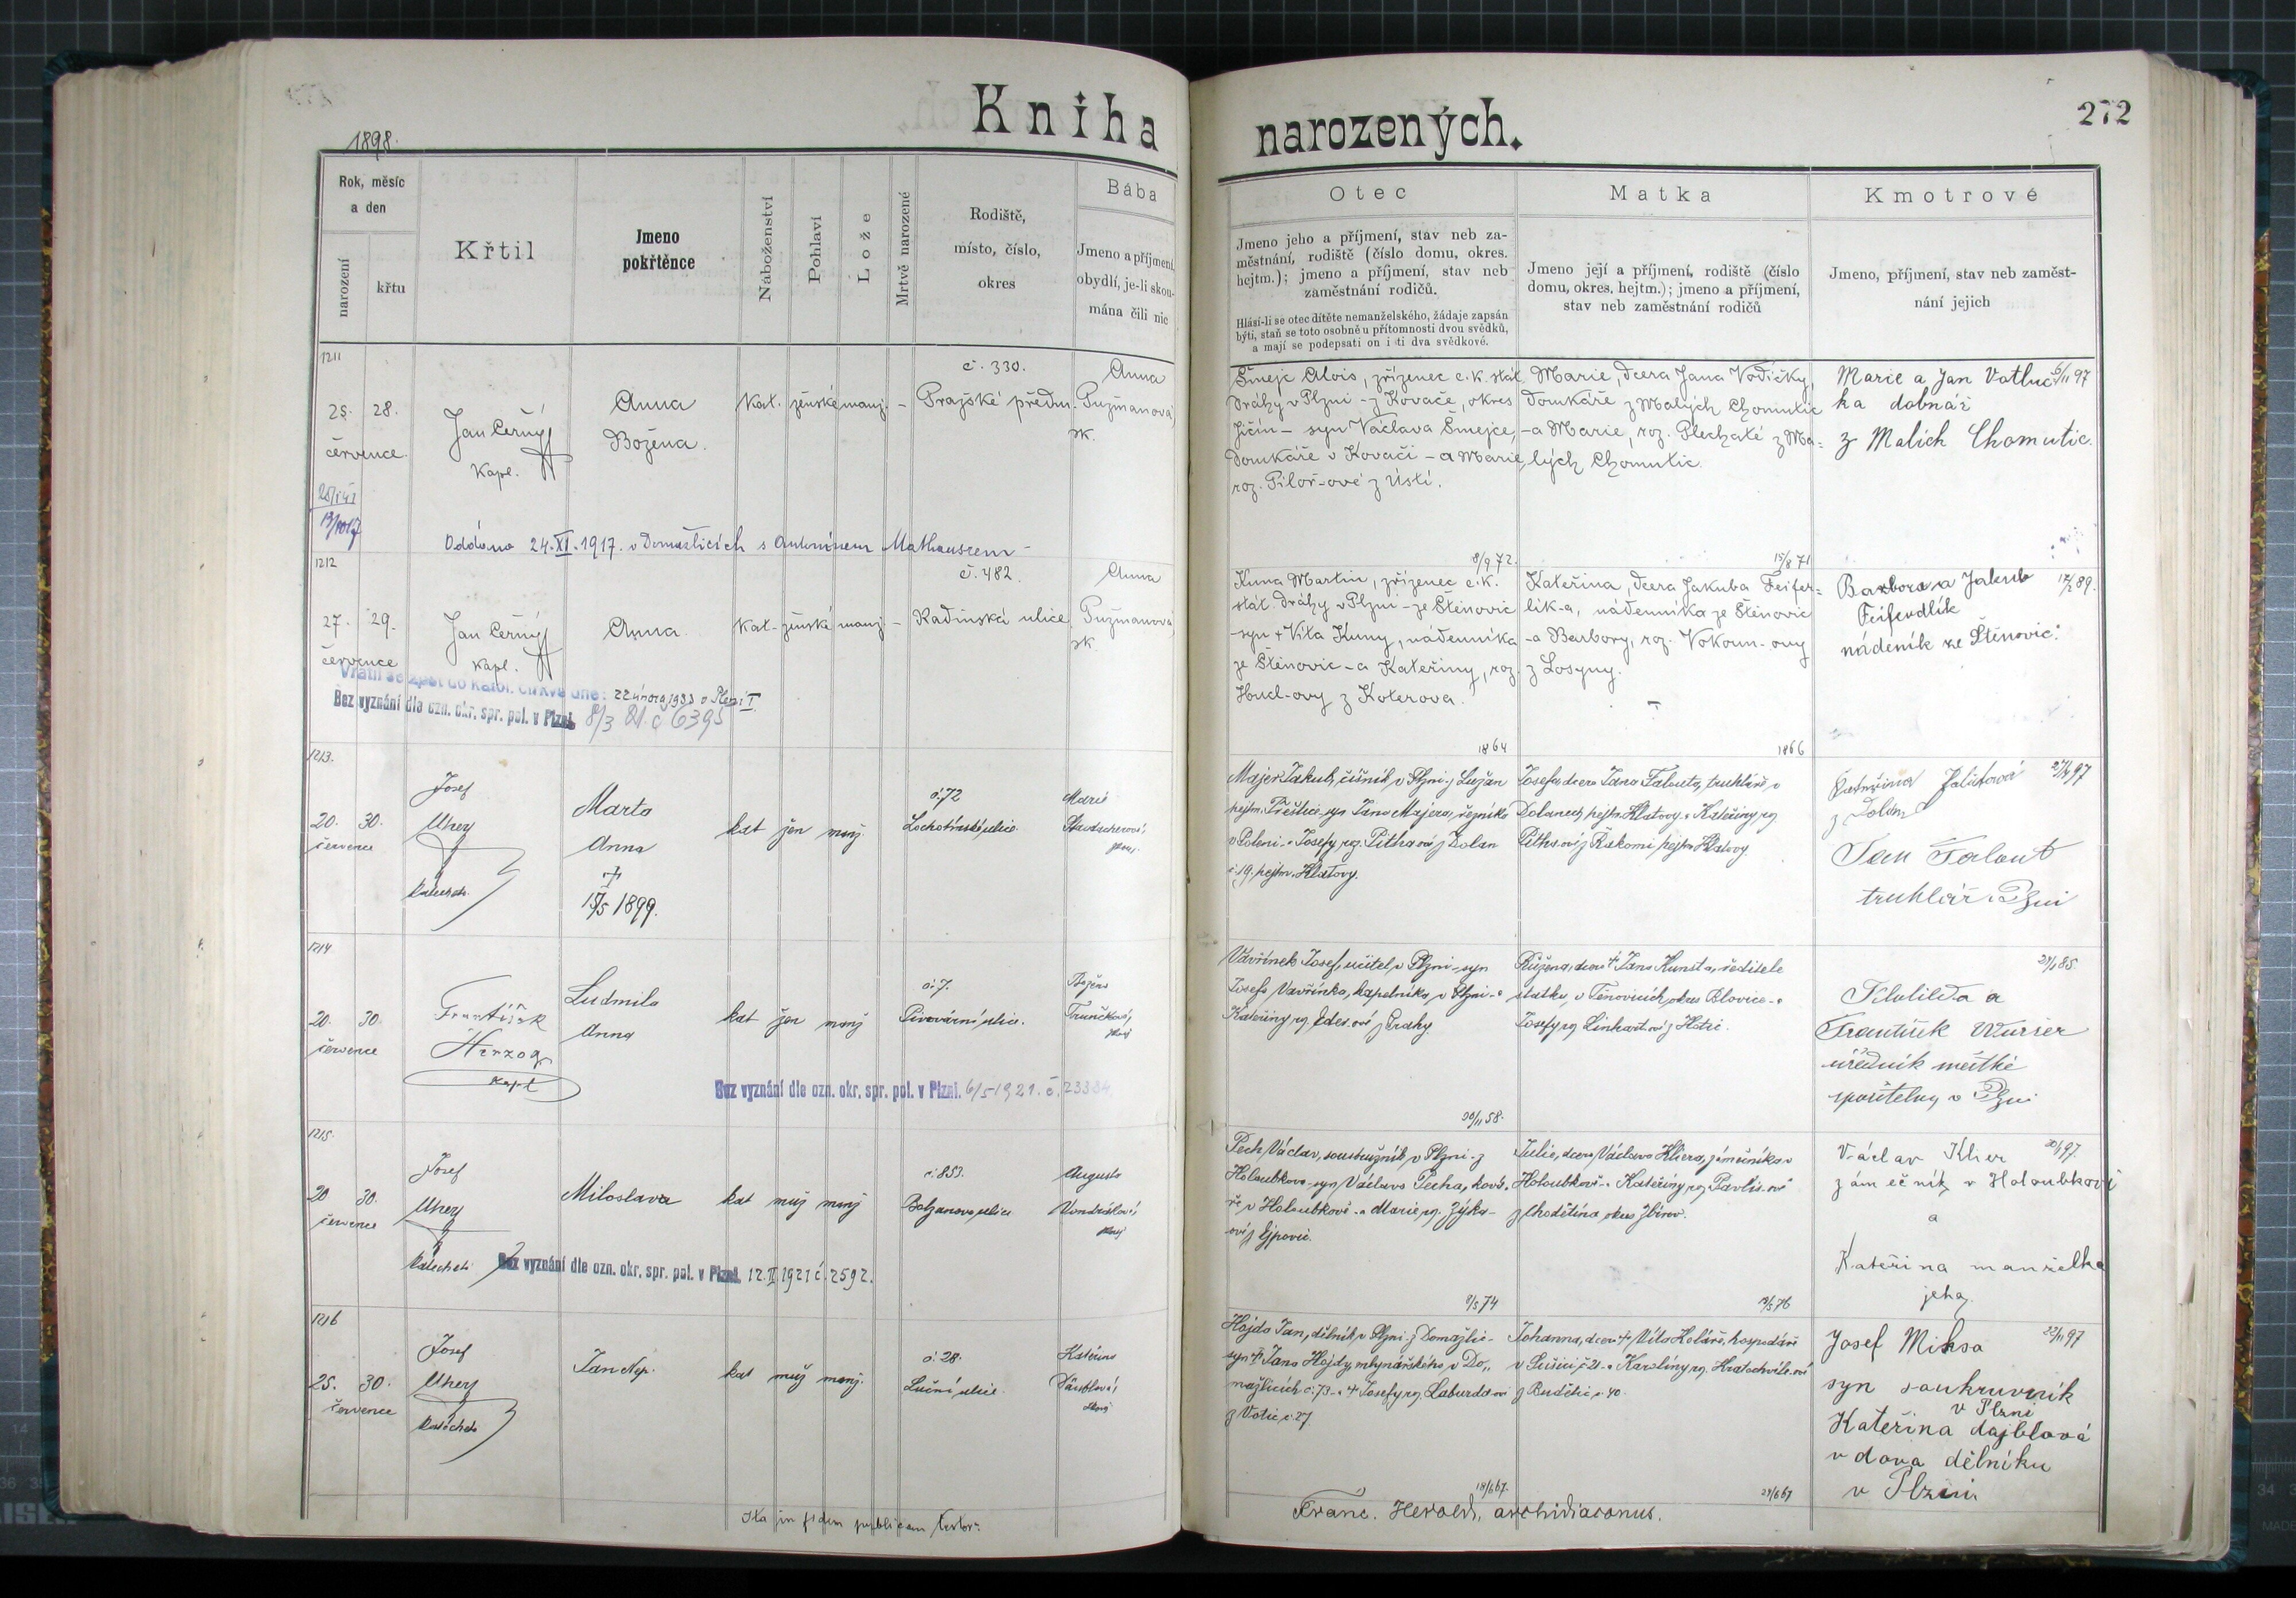 Kniha narozených.
272
1898.
Rok, měsíc a den
narození
křtu
Křtil
Jmeno pokřtěnce
Náboženství
Pohlaví
Lože
Mrtvě narozené
Rodiště,
místo, číslo,
okres
Bába
Jmeno a příjmení,
obydlí, je-li skou-
mána čili nic
Otec
Jmeno jeho a příjmení, stav neb za-
městnání, rodiště (číslo domu, okres.
hejtm.); jmeno a příjmení, stav neb
zaměstnání rodičů.
Hlásí-li se otec dítěte nemanželského, žádaje zapsán
býti, staň se toto osobně u přítomnosti dvou svědků,
a mají se podepsati on i ti dva svědkové.
Matka
Jmeno její a příjmení, rodiště (číslo
domu, okres. hejtm.); jmeno a příjmení,
stav neb zaměstnání rodičů
Kmotrové
Jmeno, příjmení, stav neb zaměst-
nání jejich
1211
25. 28.
července
Jan Černý
Kapl.
Anna
Božena.
Kat. ženské manž. –
č. 330.
Pražské předm.
Anna
Pužmanová
zk.
Šmejc Alois, zřízenec c.k. stát.
dráhy v Plzni – z Kovače, okres
Jičín – syn Václava Šmejce,
domkáře v Kovači – a Marie,
roz. Pilař-ové z Ústí.
Marie, dcera Jana Vodičky,
domkáře z Malých Chomutic
– a Marie, roz. Plechaté z Ma-
lých Chomutic.
Marie a Jan Votluč 5/11 97
ka
z Malich Chomutic.
Oddána 24. XI. 1917. v Domažlicích s Antonínem Mathauserem –
8/9 72.
15/8 71
1212
27. 29.
července
Jan Černý
Kapl.
Anna
Kat. ženské manž. –
č. 482.
Radinská ulice
Anna
Pužmanová
zk.
Kuna Martin, zřízenec c.k.
stát. dráhy v Plzni – ze Štěnovic
– syn † Víta Kuny, nádenníka
ze Štěnovic – a Kateřiny, roz.
Hucl-ovy z Koterova.
Kateřina, dcera Jakuba Feifer-
lik-a, nádenníka ze Štěnovic
– a Barbory, roz. Vokoun-ovy
z Losyny.
Barbora a Jakub 12/2 89.
Feiferdlík
nádeník ze Štěnovic.
Vrátil se zpět do katol. církve dne: 22 února 1933 v Plzni I.
Bez vyznání dle ozn. okr. spr. pol. v Plzni 8/3 21. č 6395
1864
1866
1213.
20. 30.
července
Josef
Uhey
katecheta
Marta
Anna
†
15/5 1899.
kat žen manž.
č. 72
Lochotínská ulice
Marie
zkouš.
Majer Jakub, číšník v Plzni z Lužan
hejtm. Přeštice, syn Jana Majera, řezníka
v Poleni – a Josefy roz. Pitha-ové z Dolan
č. 19, hejtm. Klatovy.
Josefa dcera Jana Talouta, truhláře v
Dolanech, hejtm. Klatovy – a Kateřiny roz.
Pitha-ové z Řakomi hejtm. Klatovy.
Kateřina Taloutová
z Dolan
Jan Talout
truhlář v Plzni
1214
20. 30.
července
František
Herzog
kapl
Ludmila
Anna
kat žen manž
č. 7.
Pivovární ulice.
Božena
Trunečková
zkouš
Vavřinek Josef, učitel v Plzni – syn
Josefa Vavřinka, kapelníka v Plzni – a
Kateřiny roz. Edes-ové z Prahy
Růžena, dcera † Jana Kunsta, ředitele
statku v Těnovicích, okres Blovice – a
Josefy roz Linhart-ové z
Klotilda a
František Wurser
úředník městké
spořitelny v Plzni
Bez vyznání dle ozn. okr. spr. pol. v Plzni. 6/5 1921. č. 23384.
20/11 58.
1215.
20 30.
července
Josef
Uhey
katecheta
Miloslava
kat muž manž
č. 853.
Bolzanova ulice
Augusta
Vondrášková
zkouš
Pech Václav, soustružník v Plzni – z
Holoubkova – syn Václava Pecha, ková-
ře v Holoubkově – a Marie roz. Zýka-
ové z Ejpovic.
Julie, dcera Václava Kliera, zámečníka v
Holoubkově – a Kateřiny roz Pavlis-ové
z Chodětína okres Zbirov.
Václav Klier
zámečník v Holoubkově
a
Kateřina manželka
jeho.
Bez vyznání dle ozn. okr. spr. pol. v Plzni. 12. II. 1921 č. 2592.
9/5 74
1216
25. 30.
července
Josef
Uhey
katecheta
Jan Nep.
kat muž manž.
č. 28.
Luční ulice.
Kateřina
zkouš
Hojda Jan, dělník v Plzni z Domažlic –
syn † Jana Hojdy mlynářského v Do-
mažlicích č. 73 – a † Josefy roz. Laburda-ové
z Votic č. 27
Johanna, dcera † Víta Koláře, hospodáře
v Sušici č. 21 – a Karolíny roz. Hratochvíle-ové
z Budětic č. 40.
Josef Miksa 22/11 97
syn soukruvník
v Plzni
Kateřina dajblová
vdova dělníku
v Plzni
18/6 67.
Ita in fidem publicam testor:
Franc. Herold, archidiaconus.